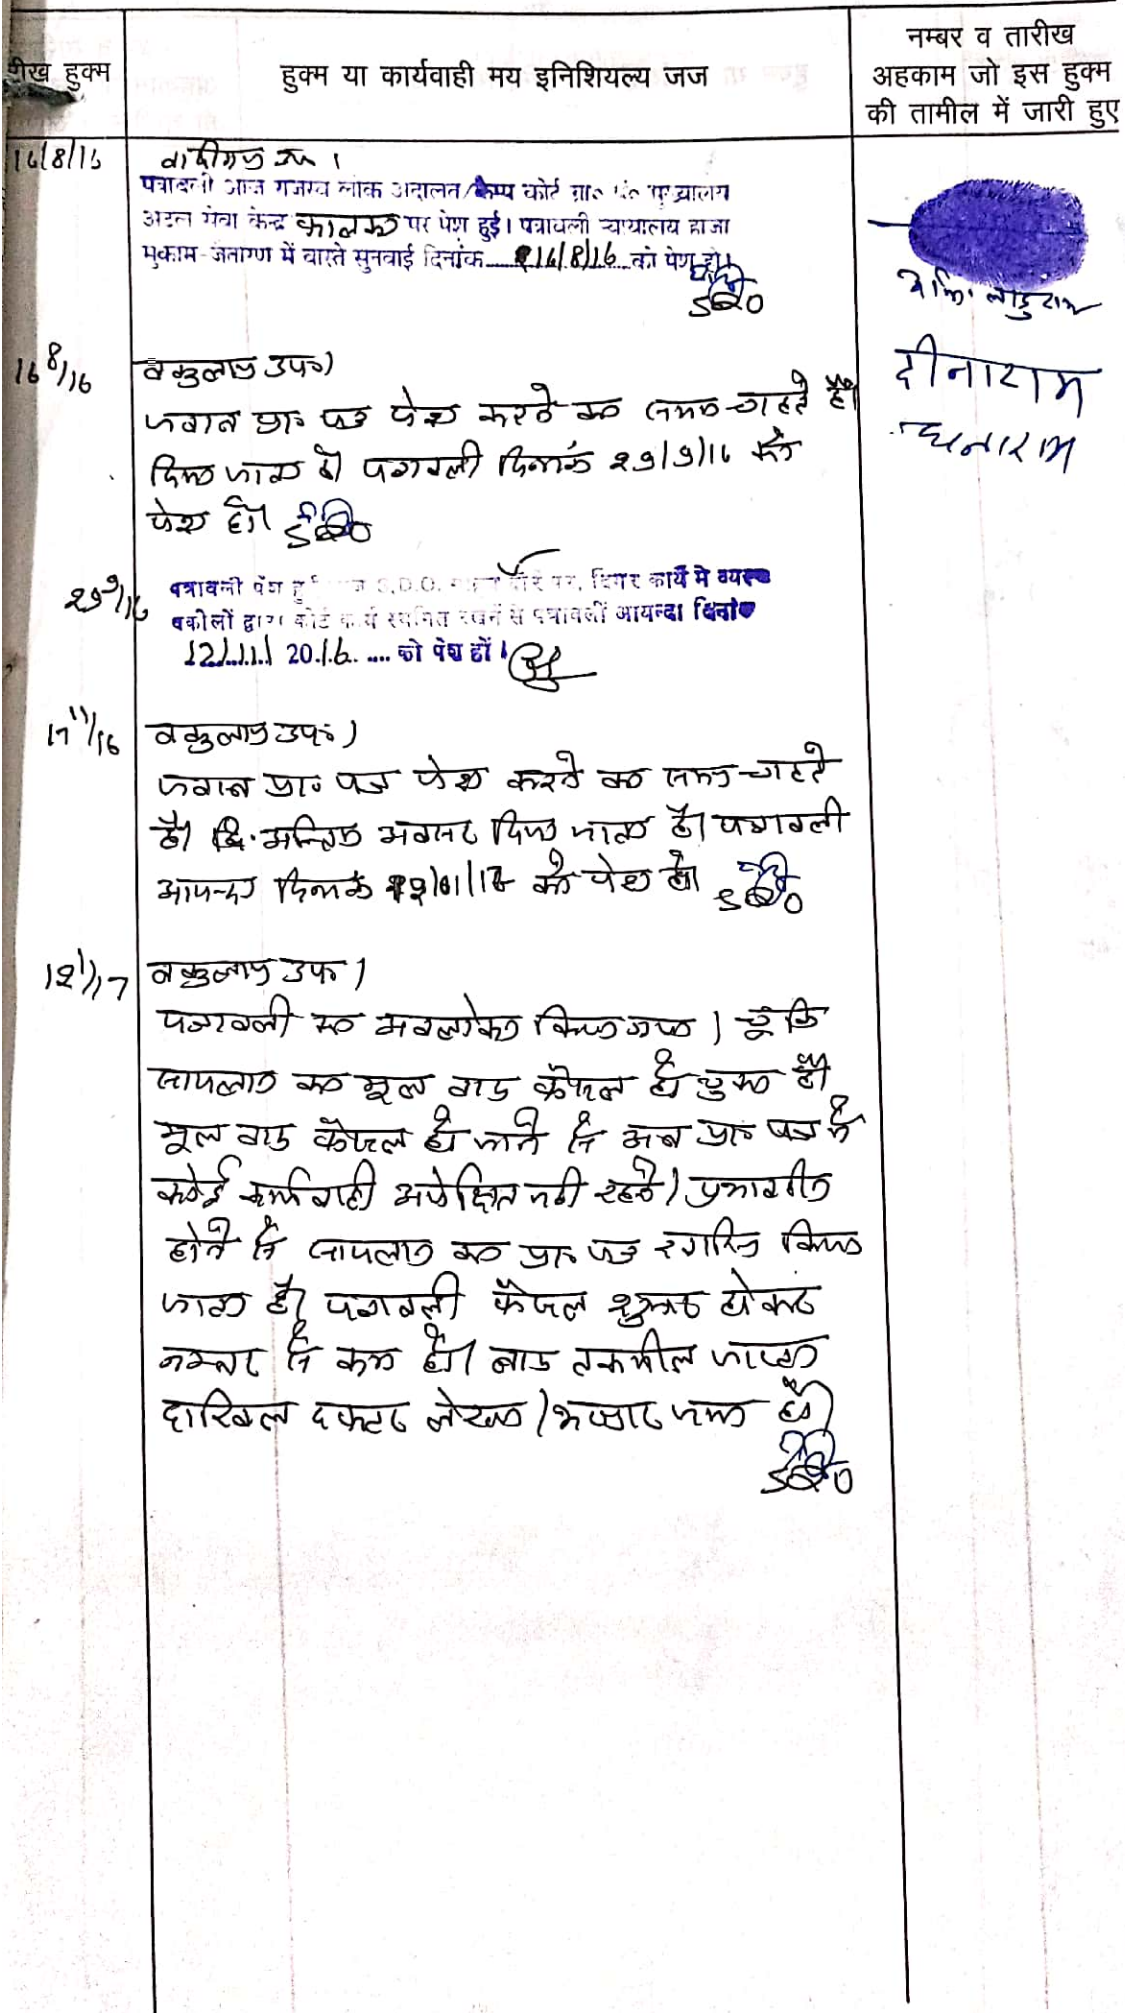 रीख हुक्म
हुक्म या कार्यवाही मय इनिशियल्य जज
नम्बर व तारीख
अहकाम जो इस हुक्म
की तामील में जारी हुए
16/8/16
वादीगण उप।
पत्रावली आज राजस्व लोक अदालत/कैम्प कोर्ट ग्रा० पं० मुख्यालय
अटल सेवा केन्द्र पर पेश हुई। पत्रावली न्यायालय हाजा
मुकाम-जैतारण में वास्ते सुनवाई दिनांक 16/8/16 को पेश हो।
SDO
लादुराम
16/8/16
वकुलाय उफ।
जवाब प्रा० पत्र पेश करने का समय चाहते है।
दिया जाता है। पत्रावली दिनांक 29/9/16 को
पेश हो। SDO
दीनाराम
घनाराम
29/9/16
पत्रावली पेश हुई S.D.O. दौरे पर, दिगर कार्य में व्यस्त
वकीलों द्वारा कोर्ट कार्य स्थगित रखने से पत्रावली आयन्दा दिनांक
12/11/2016 .... को पेश हों।
17/11/16
वकुलाय उफ।
जवाब प्रा० पत्र पेश करने का समय चाहते
है। अन्तिम अवसर दिया जाता है। पत्रावली
आयन्दा दिनांक को पेश हो। SDO
12/1/17
वकुलाय उफ।
पत्रावली का अवलोकन किया गया। चूंकि
सायलान का मूल वाद फैसल हो चुका है।
मूल वाद फैसल हो जाने से अब प्रा० पत्र में
कोई कार्यवाही अपेक्षित नहीं रहती।
होने से सायलान का प्रा० पत्र खारिज किया
जाता है। पत्रावली फैसल शुमार होकर
नम्बर से कम हो। बाद तकमील जाप्ता
दाखिल दफ्तर
SDO